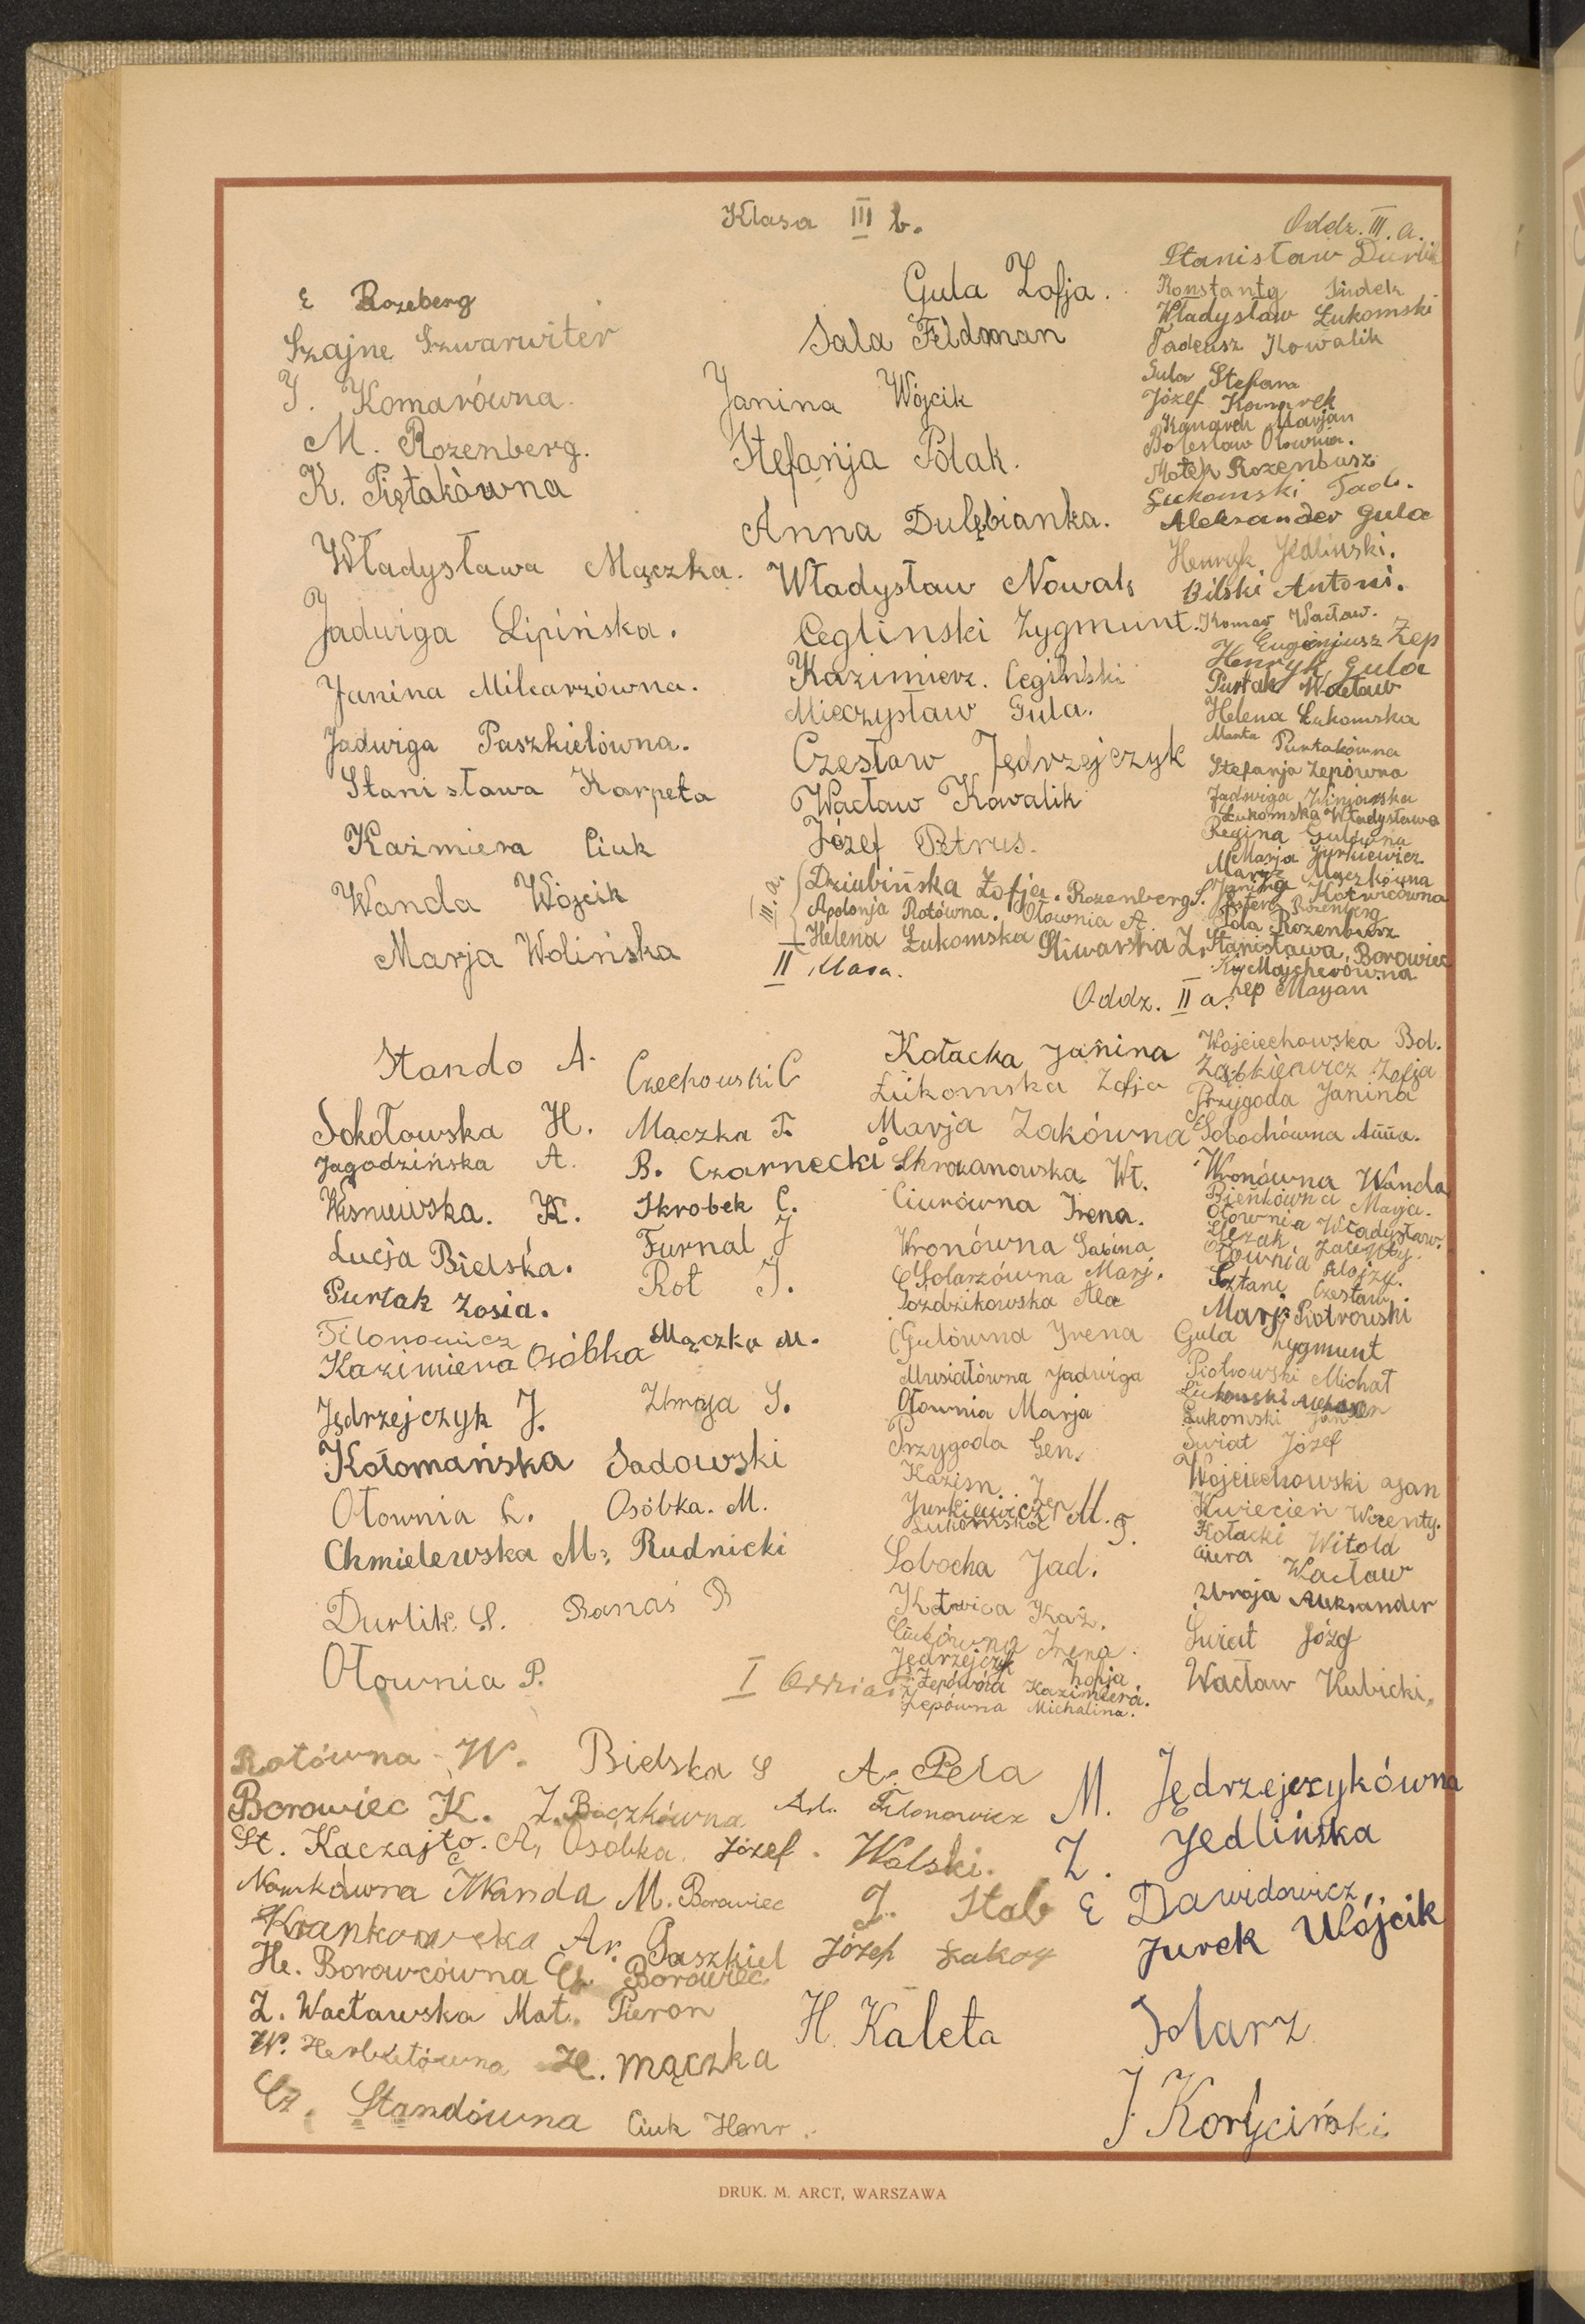 Klasa III b.
E Rozeberg
Szajne Szwarwiter
J. Komarówna.
M. Rozenberg.
K. Piętakówna
Władysława Mączka.
Jadwiga Lipińska.
Janina Milcarzówna.
Jadwiga Paszkielówna.
Stanisława Karpeta
Kaźmiera Ciuk
Wanda Wójcik
Marja Wolińska
Gula Zofja.
Sala Feldman
Janina Wójcik
Stefanja Polak.
Anna Dulębianka.
Władysław Nowak
Cegliński Zygmunt.
Kazimierz. Cegiński
Mieczysław Gula.
Czesław Jędrzejczyk
Wacław Kowalik
Józef Petrus.
III. a.
Dziubińska Zofja. Rozenberg S.
Apolonja Rotówna. Ołownia A.
Helena Łukomska Śliwarska Z.
Oddz. III. a.
Stanisław Durlik
Konstanty Sudek
Władysław Łukomski
Tadeusz Kowalik
Gula Stefan
Józef Komarek
Marjan
Bolesław Ołownia.
Rozenbusz
Łukomski Tad.
Aleksander Gula
Henryk Jedliński.
Bilski Antoni.
Komar Wacław.
Eugenjusz Zep
Henryk Gula
Purtak Wacław
Helena Łukomska
Marta Purtakówna
Stefanja Zepówna
Jadwiga Winiarska
Łukomska Władysława
Regina Gulówna
Marja Jurkiewicz
Mączkówna
Janina Kotwicówna
Estera Rozenberg
Pola Rozenbusz
Stanisława Borowiec
Majcherówna
Zep Mayan
II Klasa.
Stando A.
Sokołowska H.
Jagodzińska A.
Wiśniewska. K.
Lucja Bielska.
Purtak Zosia.
Filonowicz
Kazimiera Osóbka
Jędrzejczyk J.
Kołomańska
Ołownia L.
Chmielewska M.
Durlik S.
Ołownia P.
Czechowski C
Mączka T.
B. Czarnecki
Skrobek C.
Furnal J
Rot J.
Mączka M.
Zbroja S.
Sadowski
Osóbka. M.
Rudnicki
Banaś B
Oddz. II a.
Kołacka Janina
Łukomska Zofja
Marja Żakówna
Skrozanowska Wł.
Ciurówna Irena.
Wronówna Sabina
Solarzówna Marj.
Goździkowska Ala
Gulówna Irena
Musiałówna Jadwiga
Ołownia Marja
Przygoda Gen.
Kazim. Zep
Jurkiewicz M.
Łukomska T.
Sobocha Jad.
Kotwica Kaź.
Ciukówna Irena.
Jędrzejczyk Zofja
Zepówna Kazimiera.
Zepówna Michalina.
Wojciechowska Bol.
Ząbkiewicz Zofja
Przygoda Janina
Sobochówna Anna.
Wronówna Wanda
Bieńkówna Marja.
Ołownia Władysław.
Ślęzak
Ołownia Alojzy.
Sztanc Czesław.
Marj. Piotrowski
Gula Zygmunt
Piotrowski Michał
Łukomski
Łukomski Jan
Świat Józef
Wojciechowski Jan
Kwiecień Wcenty.
Kołacki Witold
Ciura Wacław
Zbroja Aleksander
Świat Józef
Wacław Kubicki.
I Oddział
Rotówna W.
Borowiec K.
St. Kaczajto.
Nowakówna Wanda
Krankowska
He. Borowcówna
Z. Wacławska
W. Herbutówna
Cz. Standówna
Bielska S
Z. Bączkówna
A. Osóbka
M. Borowiec
Ar. Paszkiel
Cz. Borowiec
Mat. Pieron
H. Mączka
Ciuk Henr.
A. Pela
Ad. Filonowicz
Józef. Wolski.
J. Stab
Józef Żakoy
H. Kaleta
M. Jędrzejczykówna
Z. Jedlińska
E Dawidowicz
Jurek Wójcik
Solarz
J. Koryciński
DRUK. M. ARCT, WARSZAWA